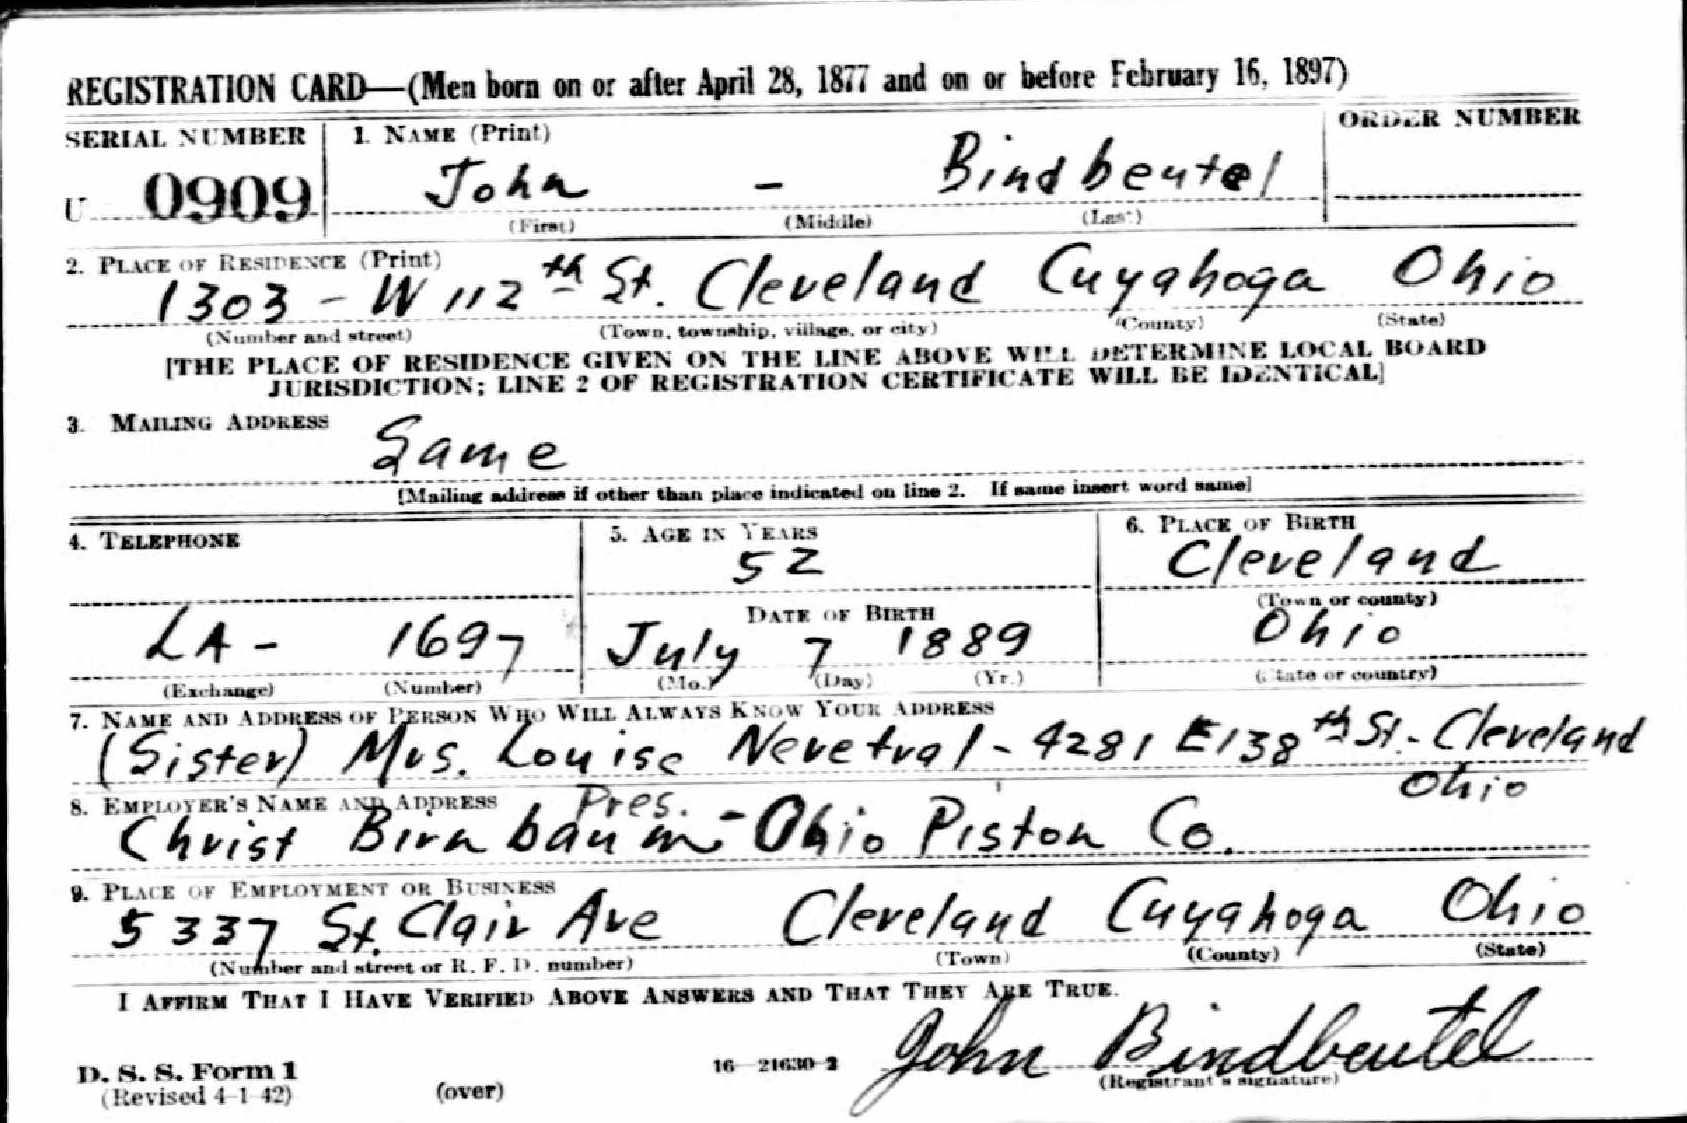 REGISTRATION CARD—(Men born on or after April 28, 1877 and on or before February 16, 1897)
SERIAL NUMBER 1. NAME (Print) ORDER NUMBER
U 0909 John - Bindbeutel
(First) (Middle) (Last)
2. PLACE OF RESIDENCE (Print)
1303 - W 112th St. Cleveland Cuyahoga Ohio
(Number and street) (Town, township, village, or city) (County) (State)
[THE PLACE OF RESIDENCE GIVEN ON THE LINE ABOVE WILL DETERMINE LOCAL BOARD
JURISDICTION; LINE 2 OF REGISTRATION CERTIFICATE WILL BE IDENTICAL]
3. MAILING ADDRESS
Same
[Mailing address if other than place indicated on line 2. If same insert word same]
4. TELEPHONE 5. AGE IN YEARS 6. PLACE OF BIRTH
52 Cleveland
DATE OF BIRTH (Town or county)
LA- 1697 July 7 1889 Ohio
(Exchange) (Number) (Mo.) (Day) (Yr.) (State or country)
7. NAME AND ADDRESS OF PERSON WHO WILL ALWAYS KNOW YOUR ADDRESS
(Sister) Mrs. Louise Nevetral - 4281 E 138th St. - Cleveland
Ohio
8. EMPLOYER'S NAME AND ADDRESS Pres.
Christ Birnbaum - Ohio Piston Co.
9. PLACE OF EMPLOYMENT OR BUSINESS
5337 St. Clair Ave Cleveland Cuyahoga Ohio
(Number and street or R. F. D. number) (Town) (County) (State)
I AFFIRM THAT I HAVE VERIFIED ABOVE ANSWERS AND THAT THEY ARE TRUE.
John Bindbeutel
D. S. S. Form 1 16—21630-2 (Registrant's signature)
(Revised 4-1-42) (over)